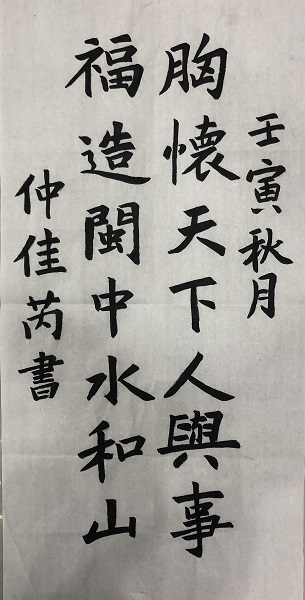 壬寅秋月
胸懷天下人與事
福造閩中水和山
仲佳芮書